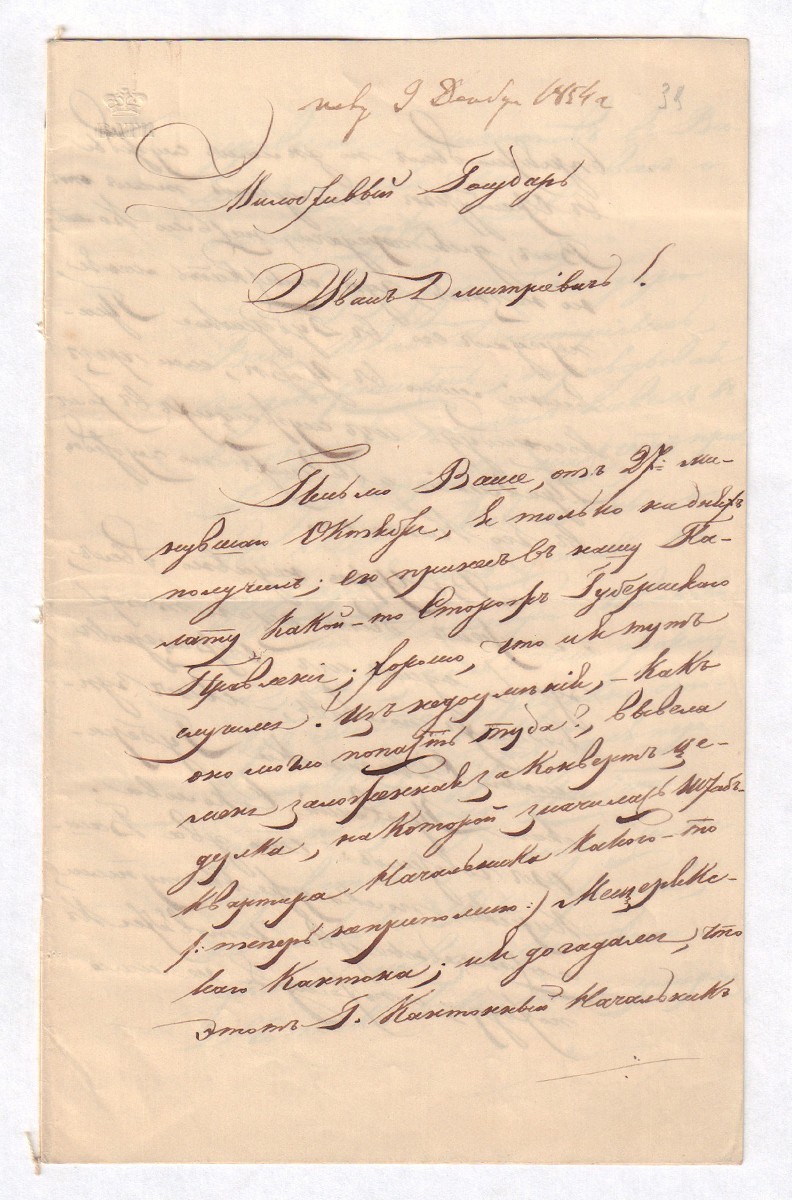 9 Декабр 1854 г 39
Милостивый Государь
Иванъ Дмитріевичъ!
Письмо Ваше, отъ 27. ми-
нувшаго Октября, я только на дняхъ
получилъ; его принесъ въ нашу Па-
лату какой-то Сторожъ Губернскаго
Правленія; хорошо, что и я тутъ
случился! Изъ недоумѣнія, - какъ
оно могло попасть туда?, вывела
меня заложенная за конвертъ це-
дулка, на которой значилась Штабъ-
квартира Начальника какого-то
(: теперь запомнилъ :) Мещерякс-
каго Кантона; и я догадался, что
этотъ Г. Кантонный Начальникъ